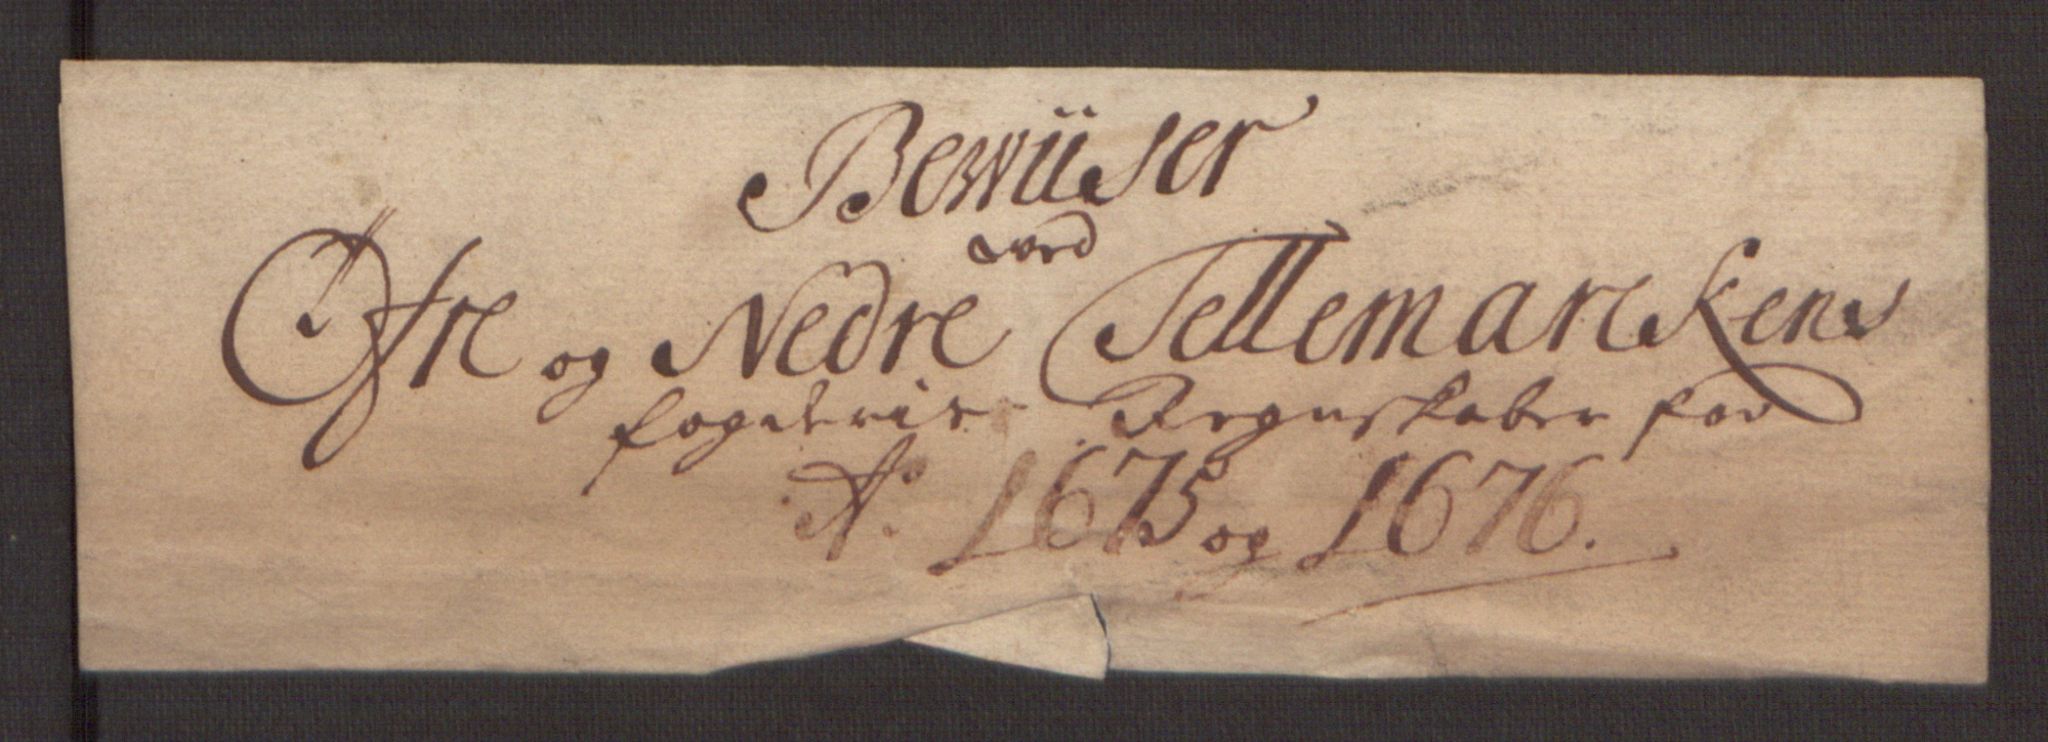 Bewiiser
ved
Øfre og Nedre Tellemarckens
fogderie Regnskaber for
A° 1675 og 1676.